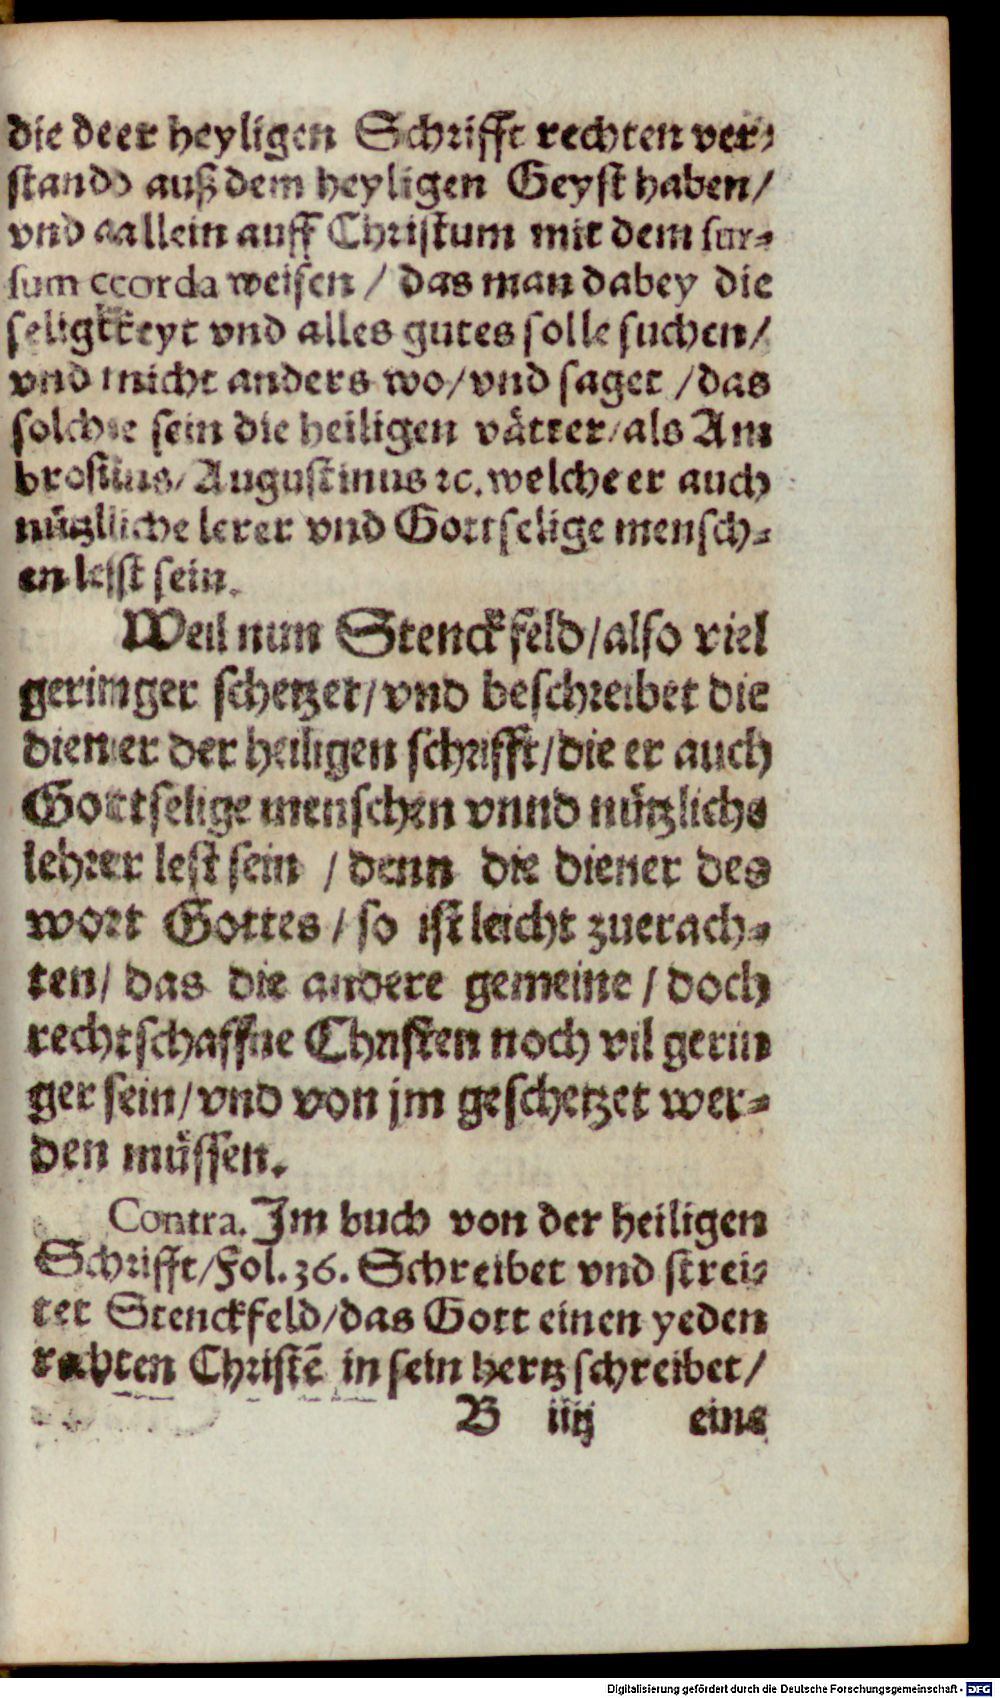 die deer heyligen Schrifft rechten ver-
stando auß dem heyligen Geyst haben/
vnd aallein auff Christum mit dem sur-
sum ccorda weisen / das man dabey die
seligkeyt vnd alles gutes solle suchen/
vnd nicht anders wo/vnd saget /das
solche sein die heiligen vätter/als Am
brosius/Augustinus ꝛc. welche er auch
nützliche lerer vnd Gottselige mensch-
en lesst sein.
Weil nun Stenckfeld/also viel
geringer schetzet/vnd beschreibet die
diener der heiligen schrifft/die er auch
Gottselige menschen vnnd nützliche
lehrer lest sein / denn die diener des
wort Gottes/so ist leicht zuerach-
ten/das die andere gemeine/doch
rechtschaffne Christen noch vil gerin
ger sein/vnd von jm geschetzet wer-
den müssen.
Contra. Im buch von der heiligen
Schrifft/Fol.36. Schreibet vnd strei-
tet Stenckfeld/das Gott einen yeden
rechten Christē in sein hertz schreibet/
B iiij eins
Digitalisierung gefördert durch die Deutsche Forschungsgemeinschaft - DFG